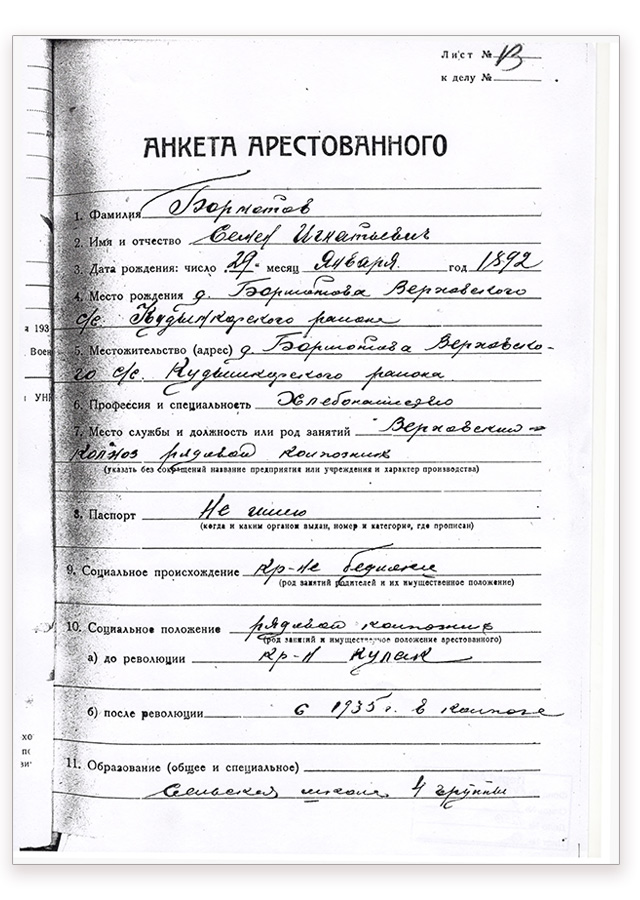 Лист №
к делу №
АНКЕТА АРЕСТОВАННОГО
1. Фамилия Борматов
2. Имя и отчество Семен Игнатьевич
3. Дата рождения: число 29 месяц Января год 1892
4. Место рождения д. Борматова Верховского
с/с. Кудымкорского района
а 193
5. Местожительство (адрес) д. Борматова Верховско-
Воен
го с/с. Кудымкорского района
УНК
6. Профессия и специальность Хлебопашество
7. Место службы и должность или род занятий Верховский
колхоз рядовой колхозник
(указать без сокращений название предприятия или учреждения и характер производства)
8. Паспорт Не имею
(когда и каким органом выдан, номер и категория, где прописан)
9. Социальное происхождение кр-не бедняки
(род занятий родителей и их имущественное положение)
10. Социальное положение рядовой колхозник
(род занятий и имущественное положение арестованного)
а) до революции кр-н кулак
б) после революции с 1935 г. в колхозе
11. Образование (общее и специальное)
Сельская школа 4 группы